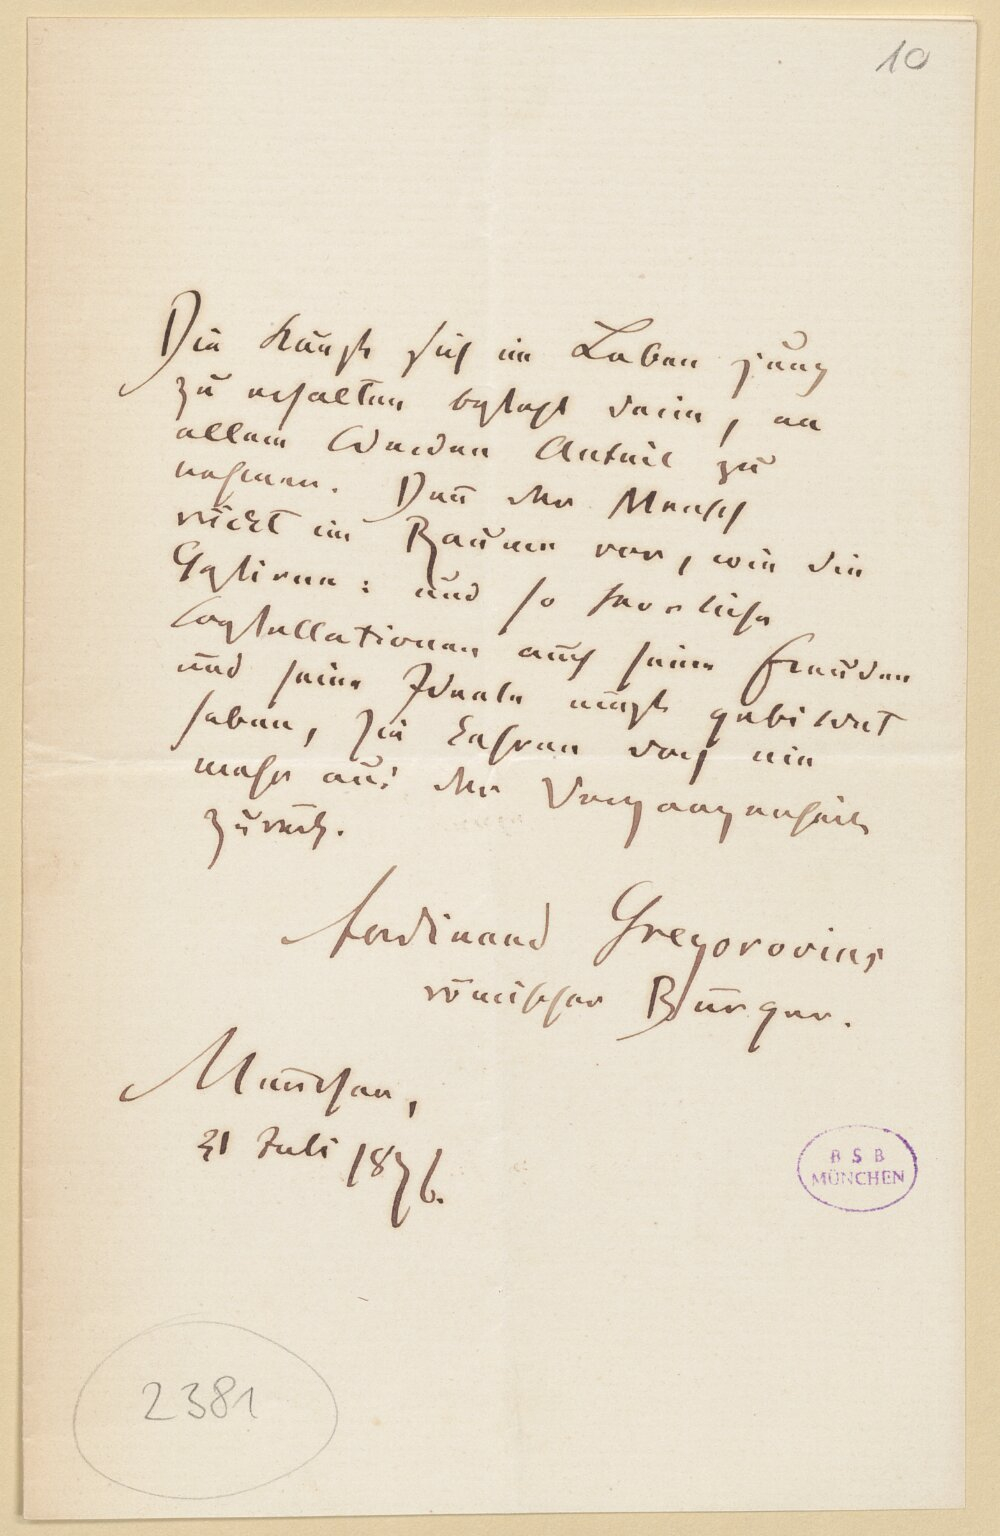 10
Die Kunst sich im Leben jung
zu erhalten besteht darin, an
allem Werden Anteil zu
nehmen. Denn der Mensch
rückt im Raume vor, wie die
Gestirne: und so herrliche
Constellationen auch seine Freuden
und seine Ideale einst gebildet
haben, sie kehren doch nie
mehr aus der Vergangenheit
zurück.
Ferdinand Gregorovius
römischer Bürger.
München,
31 Juli 1876.
B S B
MÜNCHEN
2381